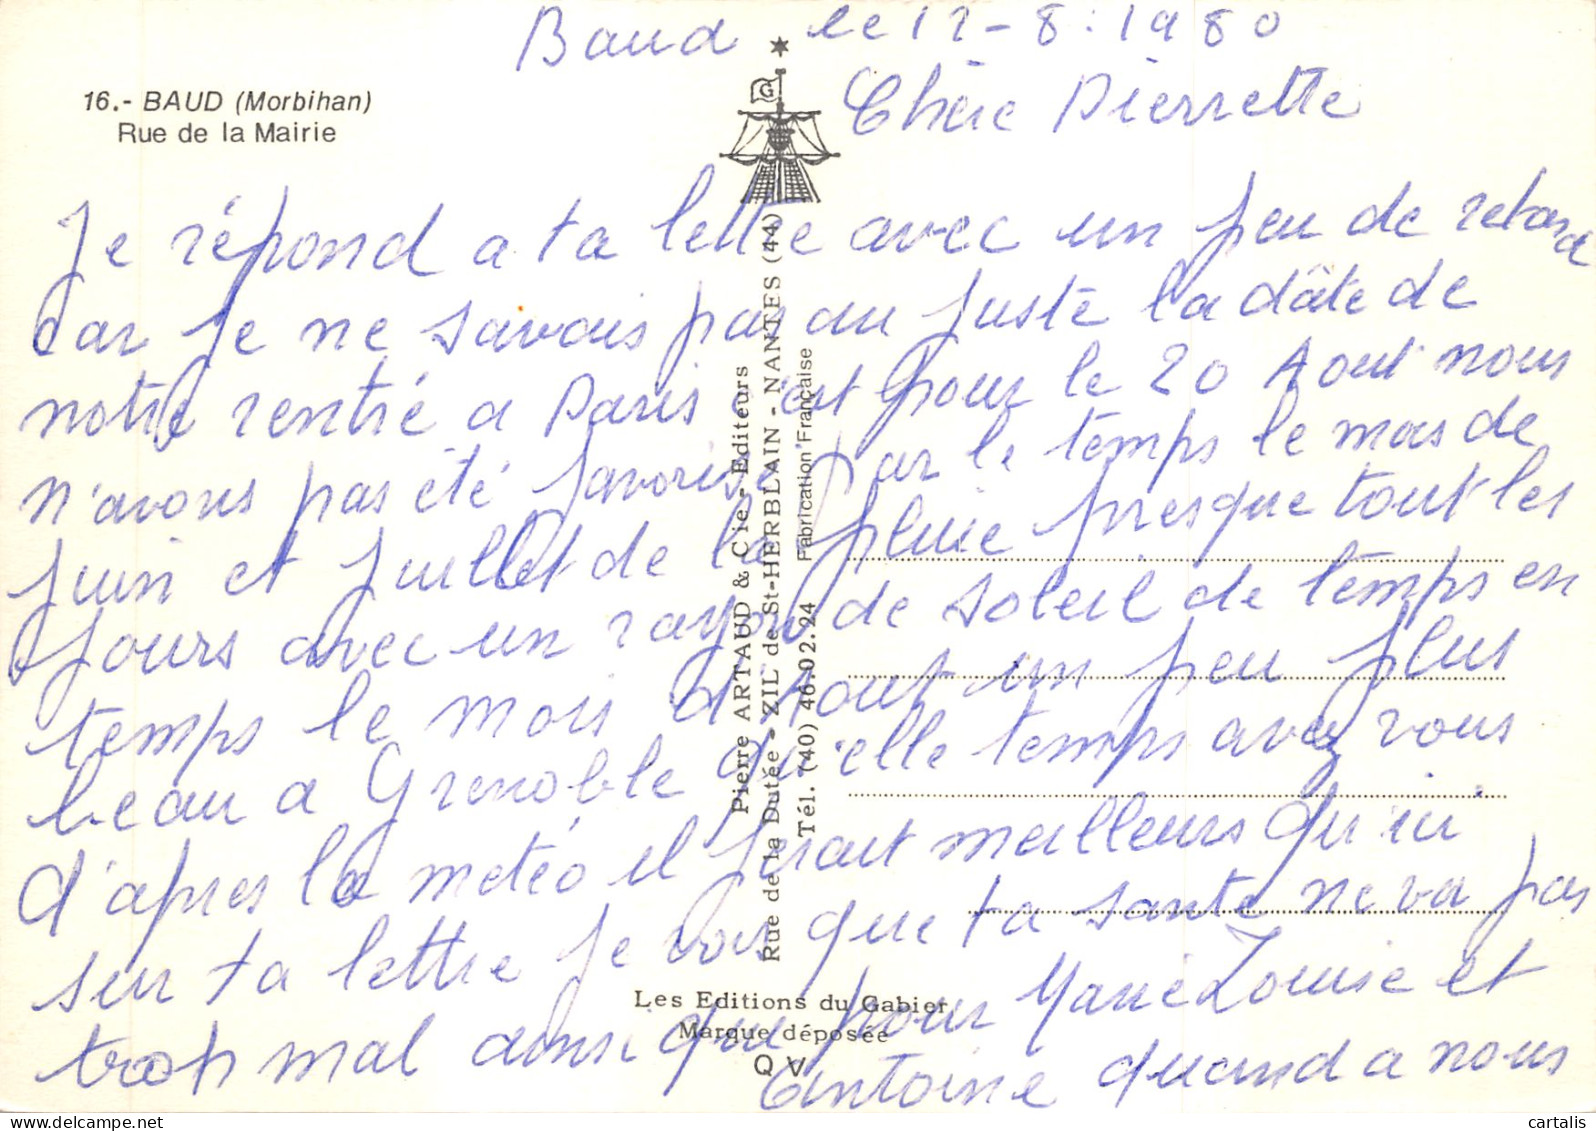 Baud le 12-8:1980
16.- BAUD (Morbihan)
Rue de la Mairie
Chère Pierrette
G
Je répond a ta lettre avec un peu de retard
car je ne savais pas au juste la dâte de
notre rentré a Paris c'est pour le 20 Aout nous
n'avons pas été favorisé par le temps le mois de
juin et juillet de la pluie presque tout les
jours avec un rayon de soleil de temps en
temps le mois d'Aout un peu plus
beau a Grenoble qu'elle temps avez vous
d'apres la météo il ferait meilleurs qu'ici
sur ta lettre je vois que ta santé ne va pas
trop mal ainsi que pour Marie Louise et
Antoine quand a nous
Pierre ARTAUD & Cie - Editeurs
Rue de la Dutée - ZIL de St-HERBLAIN - NANTES (44)
Tél. (40) 46.02.24 Fabrication Française
Les Editions du Gabier
Marque déposée
QV
cartalis
www.delcampe.net